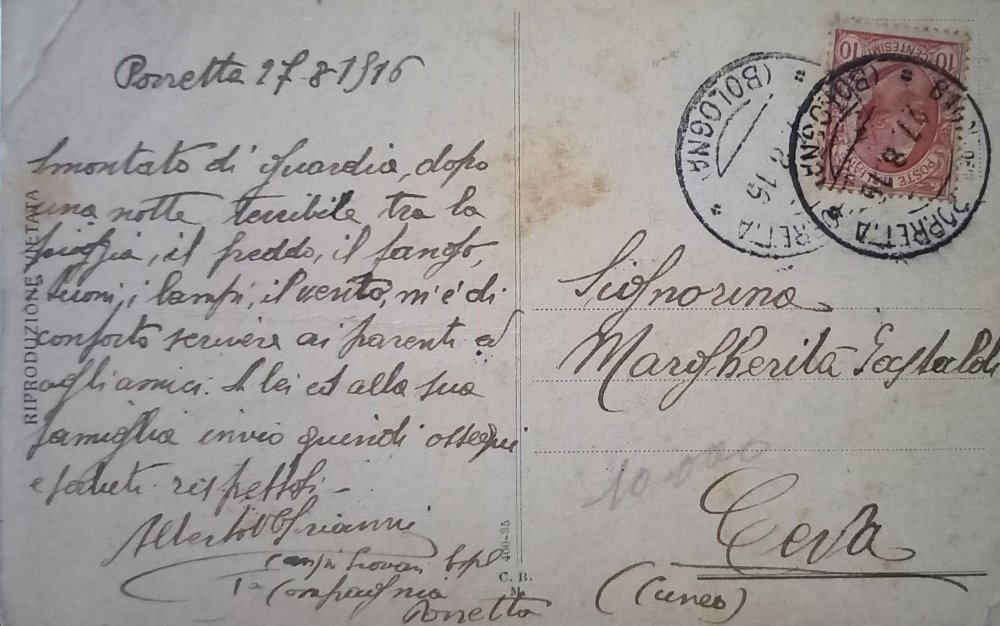 Porretta 27-8-1916
Smontato di guardia, dopo
una notte terribile tra la
pioggia, il freddo, il fango,
tuoni, i lampi, il vento, m'è di
conforto scrivere ai parenti ed
agli amici. A lei ed alla sua
famiglia invio quindi ossequi
e saluti rispettosi -
Alberto
Compagnia
Porretta
RIPRODUZIONE VIETATA
400-35
C. B.
M.
10
CENTESIMI
10
POSTE
(BOLOGNA)
(BOLOGNA)
Signorina
Margherita Gastaldi
10.000
Ceva
(Cuneo)